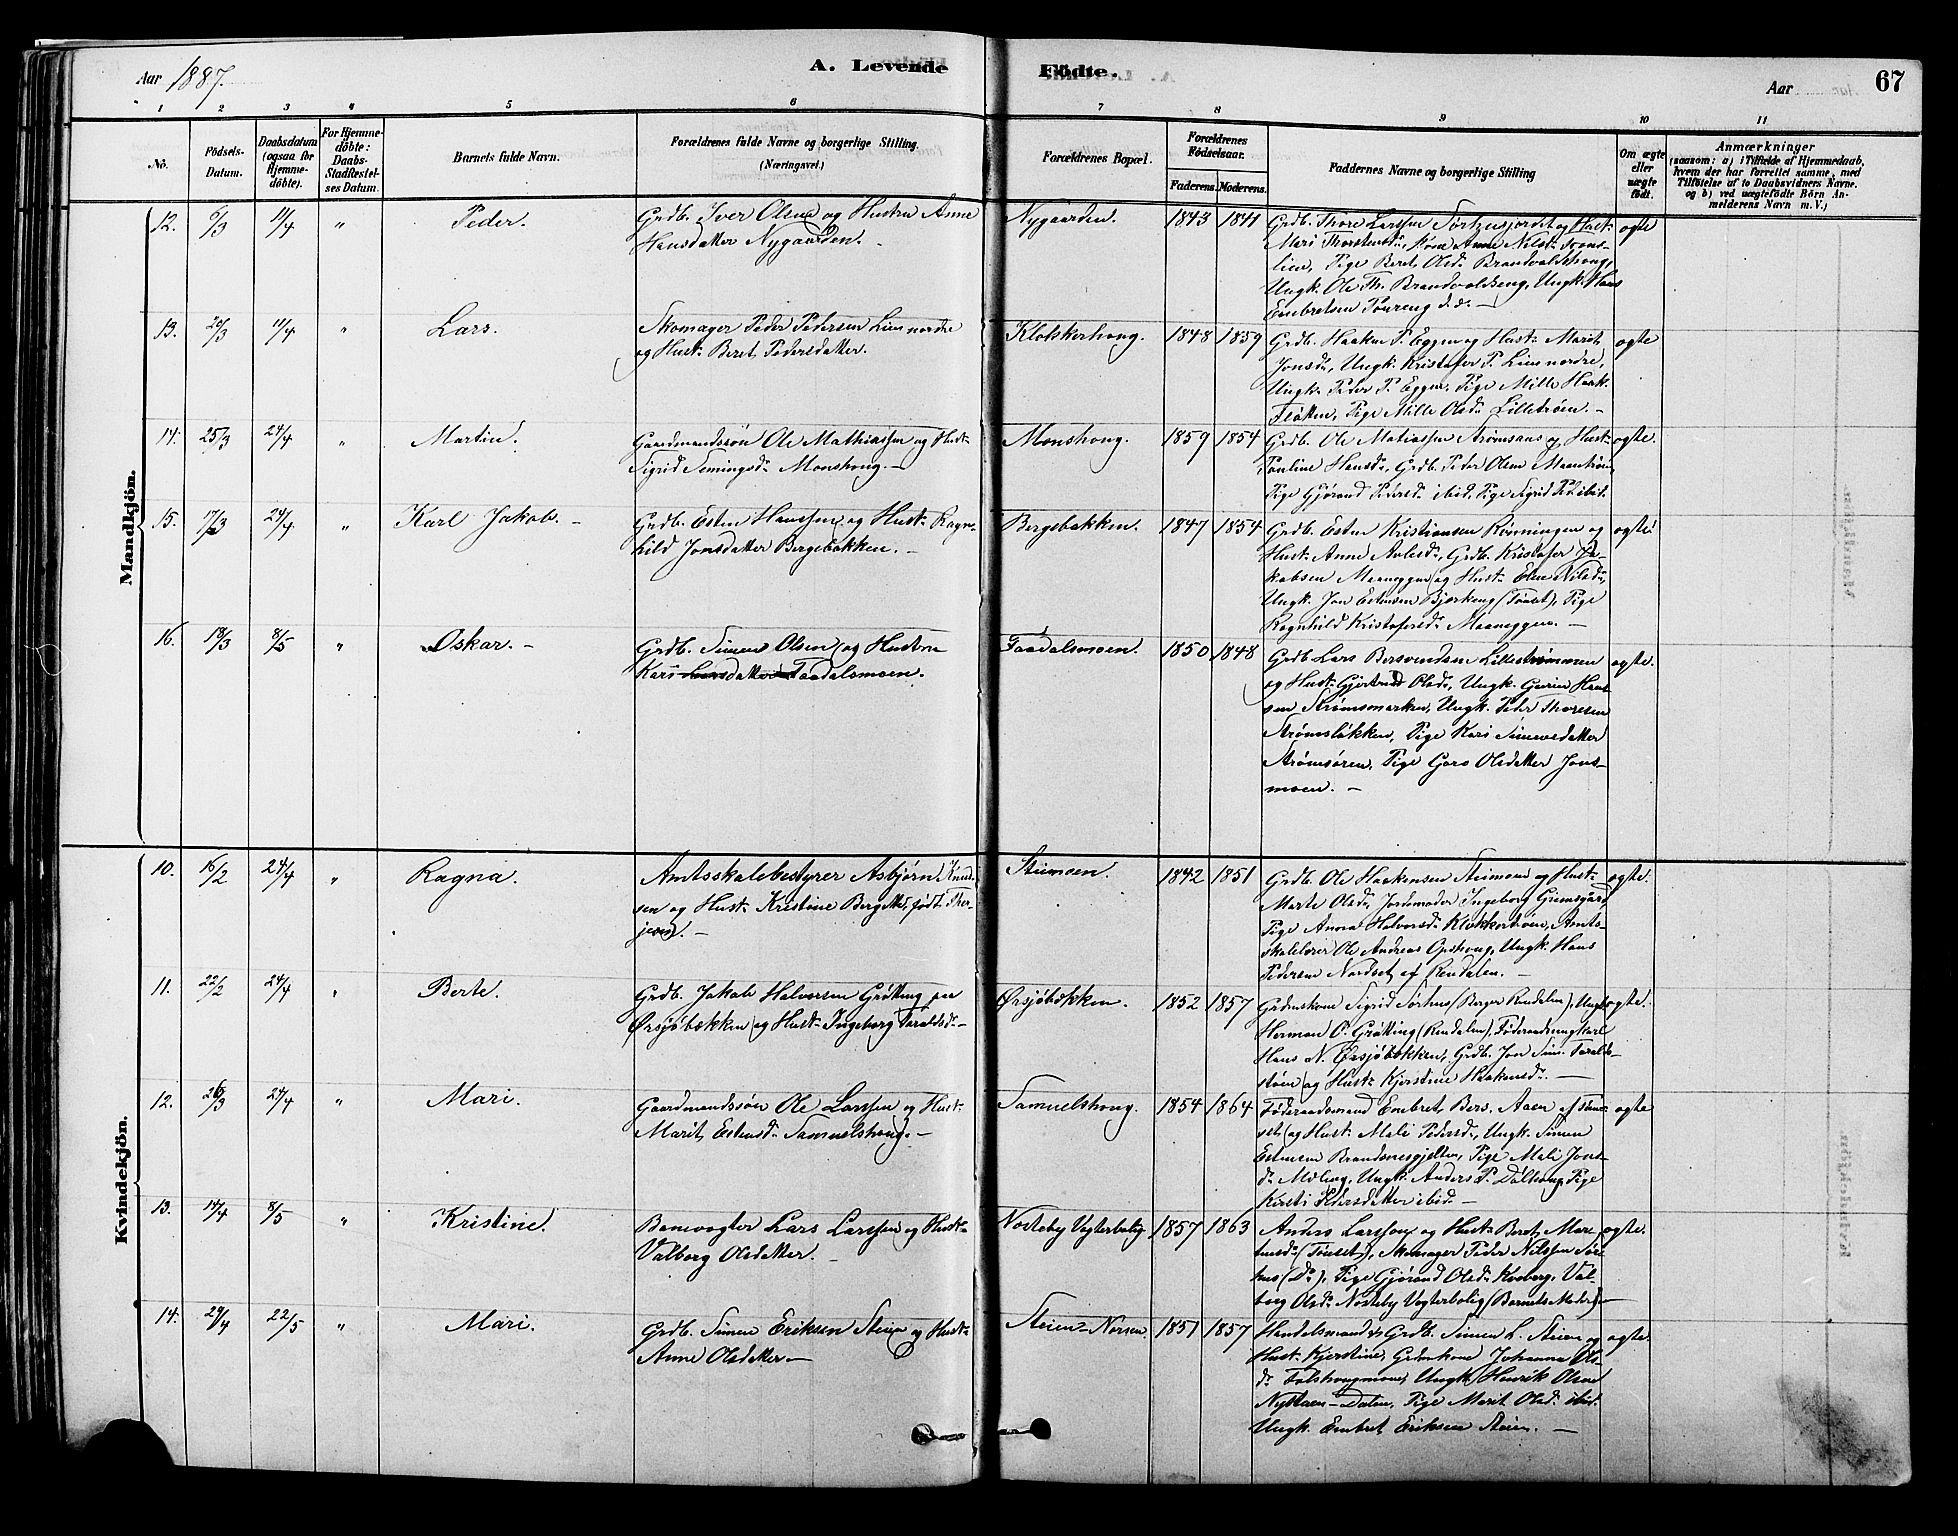 Aar 1887.
A. Levende Födte.
Aar
67
1 2 3 4 5 6 7 8 9 10 11
No.
Födsels-
Datum.
Daabsdatum
(ogsaa for
Hjemme-
döbte).
For Hjemme-
döbte:
Daabs-
Stadfæstel-
ses Datum.
Barnets fulde Navn.
Forældrenes fulde Navne og borgerlige Stilling.
(Næringsvei.)
Forældrenes Bopæl.
Forældrenes
Födselsaar.
Faderens. Moderens.
Faddernes Navne og borgerlige Stilling
Om ægte
eller
uægte
födt.
Anmærkninger
(saasom: a) i Tilfælde af Hjemmedaab,
hvem der har forrettet samme, med
Tilföielse af to Daabsvidners Navne.
og b) ved uægtefödte Börn An-
melderens Navn m. V.)
Mandkjön.
12. 6/3 11/4 " Peder.
Grdb. Iver Olsen og Hustru Anne
Hansdatter Nygaarden. -
Nygaarden. 1843 1841
Grdb. Thore Larssen og Hust.
Mari Thorstensd.,
lien, Pige Beret Olsd. Brandvoldshoug,
Ungk. Ole Th. Brandvoldseng, Ungk. Hans
Embretsen Toureng d.s. -
ægte
13. 20/3 11/4 " Lars.
Skomager Peder Pedersen Lien nordre
og Hust. Beret Pedersdatter.
Klokkerhoug. 1848 1859
Grdb. Haaken P. Eggen og Hust. Marit
Jonsd., Ungk. Kristofer P. Lien nordre,
Ungk. Peder P. Eggen, Pige Mille Haak.
Fløtten, Pige Mille Olsd. Lilletrøen. -
ægte
14. 25/3 24/4 " Martin.
Gaardmandssøn Ole Mathiassen og Hust.
Sigrid Semingsd. Monshoug. -
Monshoug. 1859 1854
Grdb. Ole Matiassen og Hust.
Pauline Hansd., Grdb. Peder Olsen
Pige Gjørand Pedersd. ibid, Pige Sigrid Pd. ibid.
ægte.
15. 17/3 24/4 " Karl Jakob. -
Grdb. Esten Hanssen og Hust. Ragn-
hild Jonsdatter Bergebakken. -
Bergebakken. 1847 1854
Grdb. Esten Kristiansen Rønningen og
Hust. Anne Nilsd., Grdb. Kristofer Ja-
kobsen Maaneggen og Hust. Elen Nilsd.,
Ungk. Jon Estensen Bjørkeng (Tønset), Pige
Ragnhild Kristofersd. Maaneggen. -
ægte
16. 18/3 8/5 " Oskar. -
Grdb. Simen Olsen og Hustru
Kari Larsdatter Faadalsmoen.
Faadalsmoen. 1850 1848
Grdb. Lars Bersvendsen Lillestrømmen
og Hust. Gjertrud Olsd., Ungk. Hans-
sen Strømsmarken, Ungk. Peder Thoresen
Strømsløkken, Pige Kari Simensdatter
Strømsøren, Pige Goro Olsdatter Jons-
moen. -
ægte.
Kvindekjön.
10. 16/2 24/4 " Ragna.
Amtsskolebestyrer Asbjørn Knud-
sen og Hust. Kristine Bergette, født Ther-
jesen. -
Steimoen. 1842 1851
Grdb. Ole Haakensen Steimoen og Hust.
Marte Olsd., Jordemoder Ingeborg Grimsgård,
Pige Anna Halvorsd. Klokkertrøen, Amts-
skolelærer Ole Andreas Opshoug, Ungk. Hans
Pedersen Nordset af Rendalen. -
ægte.
11. 22/2 24/4 " Berte.
Grdb. Jakob Halvorsen Grøtting paa
Ørsjøbækken og Hust. Ingeborg Taraldsd. -
Ørsjøbækken. 1852 1857
Grdmskone Sigrid Sørhus (Berger Rendalen), Ungk.
Herman O. Grøtting (Rendalen), Føderaadsungkarl
Hans N. Ørsjøbækken, Grdb. Jon Sim. Tarald-
støen og Hust. Kjerstine Haakensd. -
ægte.
12. 26/3 24/4 " Mari.
Gaardmandssøn Ole Larssen og Hust.
Marit Estensd. Samuelshoug. -
Samuelshoug. 1854 1864
Føderaadsmand Embret Bers. Aaen af Tøn-
set og Hust. Mali Pedersd., Ungk. Simen
Estensen Brandsnesgjelten, Pige Mali Jons-
d. Moseng, Ungk. Anders P. Dølhoug, Pige
Kirsti Pedersdatter ibid. -
ægte
13. 14/4 8/5 " Kristine.
Banevogter Lars Larssen og Hust.
Valborg Olsdatter. -
Nosteby Vogterbolig. 1857 1863
Anders Larssen og Hust. Beret Mor-
tensd. (Tønset), Skomager Peder Nilssen Sør-
hus (Do.), Pige Gjørand Olsd. Kroberg, Val-
borg Olsd. Nosteby Vogterbolig (Barnets Moder). -
ægte.
14. 24/4 22/5 " Mari.
Grdb. Simen Eriksen Steien og Hust.
Anne Olsdatter. -
Steien-Norsen. 1851 1857
Handelsmand & Grdb. Simen L. Steien og
Hust. Kjerstine, Grdmskone Johanna Ols-
d. Folshougmoen, Ungk. Henrik Olsen
Nyttaen-Dalen, Pige Marit Olsd. ibid.
Ungk. Embret Eriksen Steien. -
ægte.